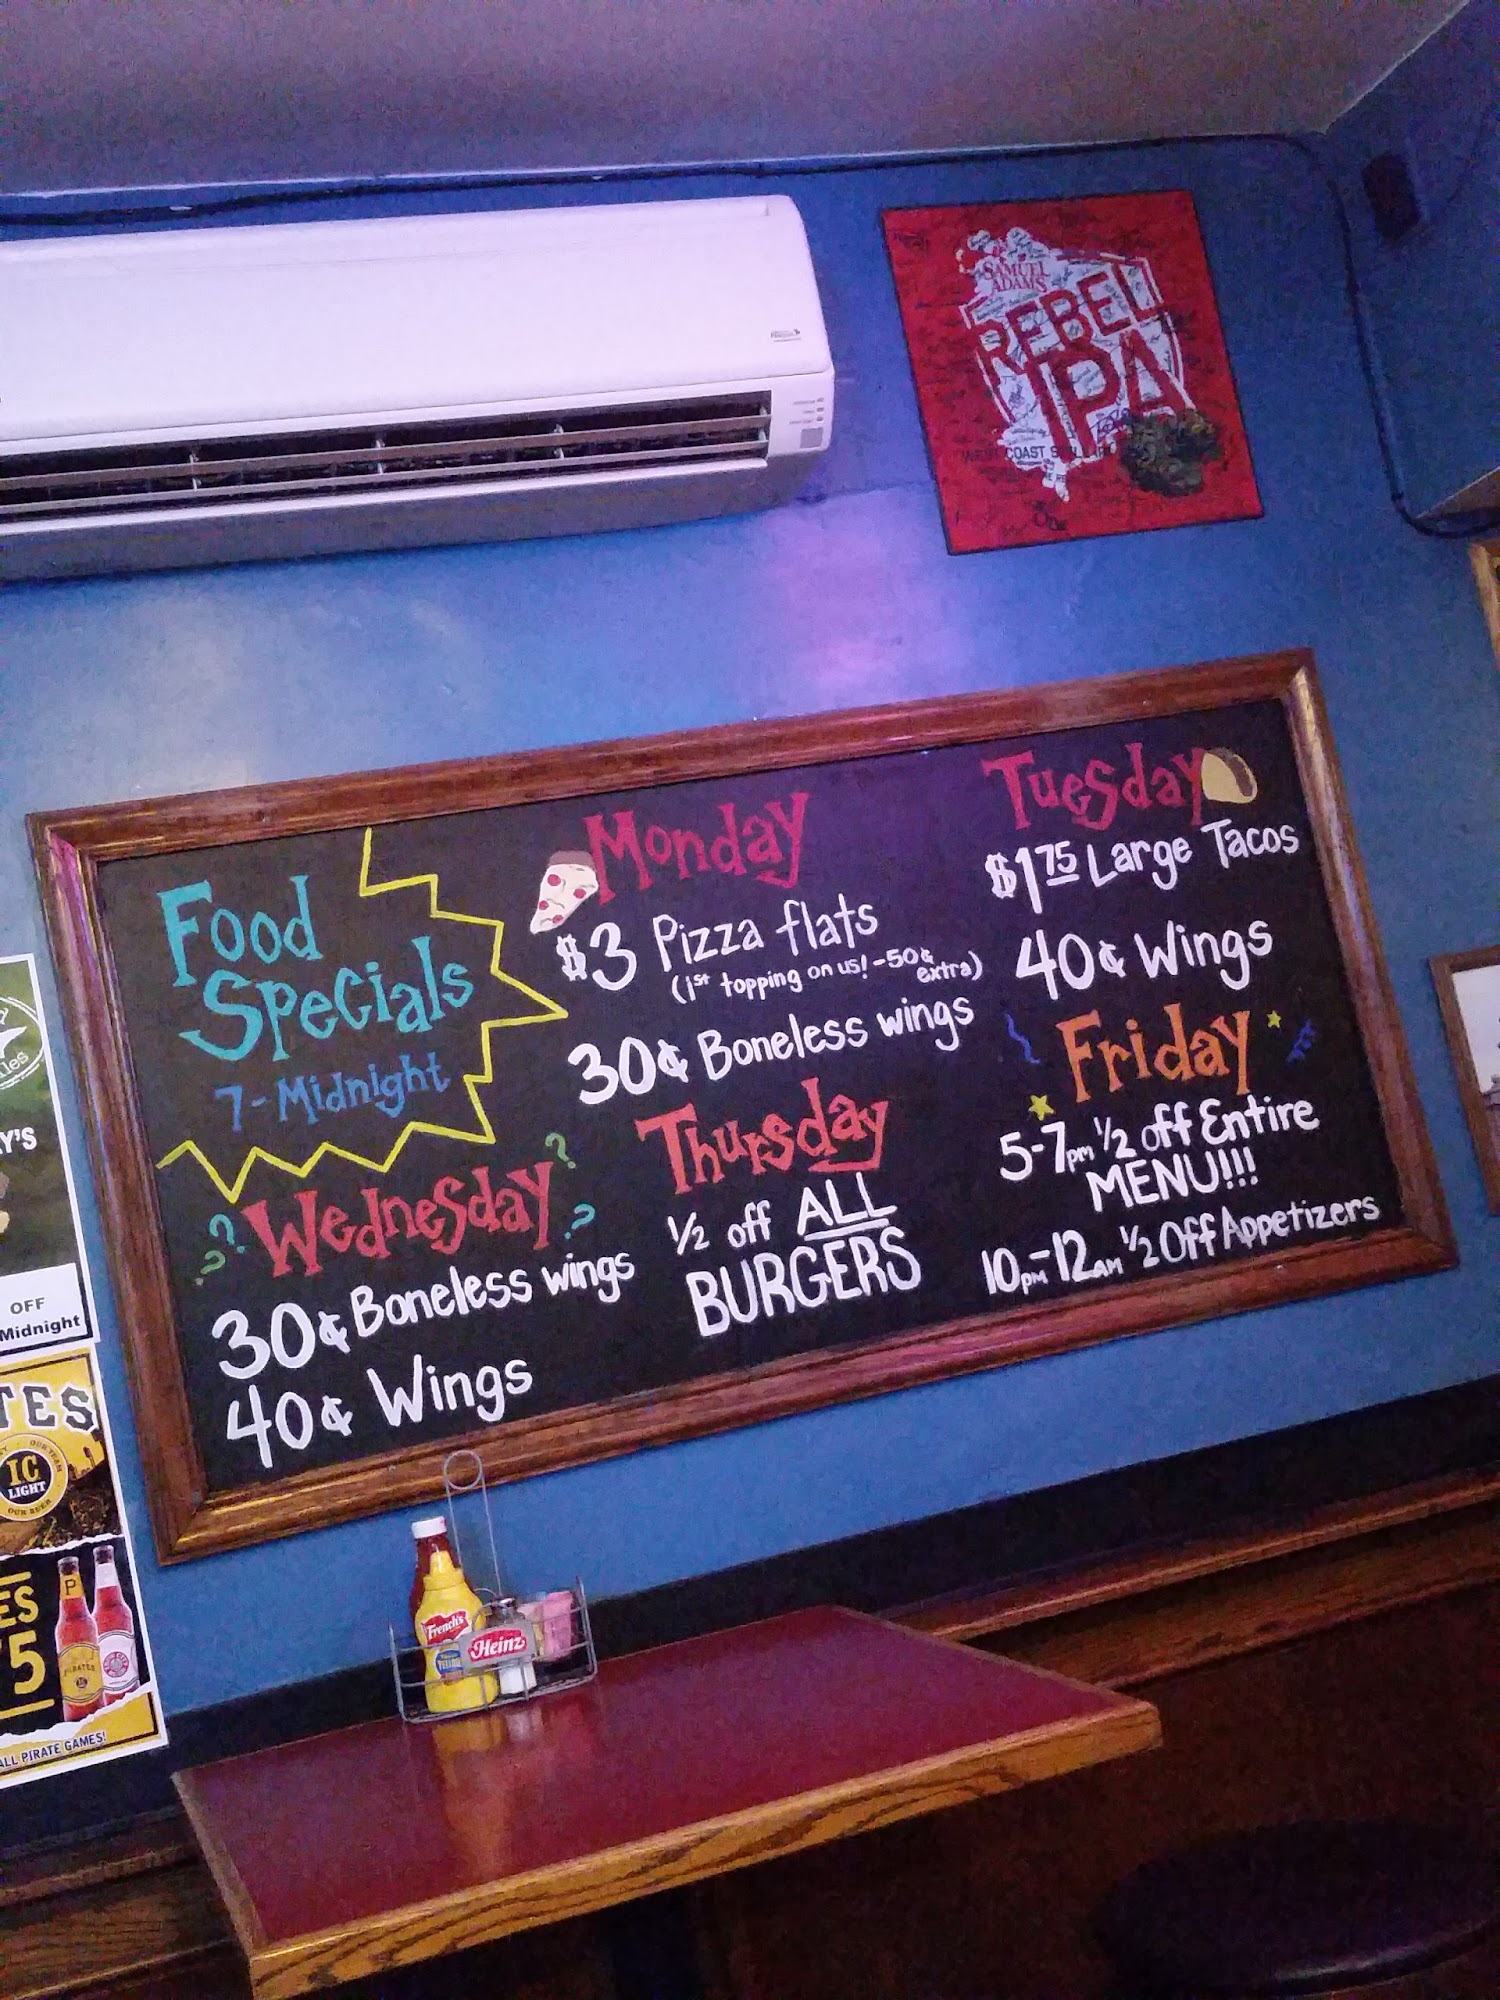 SAMUEL
ADAMS
REBEL
IPA
WEST COAST
Food
Specials
7-Midnight
Monday
$3 Pizza flats
(1st topping on us! -50¢
extra)
30¢ Boneless wings
Tuesday
$1.75 Large Tacos
40¢ Wings
Wednesday
30¢ Boneless wings
40¢ Wings
Thursday
1/2 off ALL
BURGERS
Friday
5-7pm 1/2 off Entire
MENU!!!
10pm-12am 1/2 Off Appetizers
Y'S
OFF
Midnight
TES
OUR TEAM
I.C.
LIGHT
OUR BEER
ES
5
P
PIRATES
ALL PIRATE GAMES!
French's
Heinz